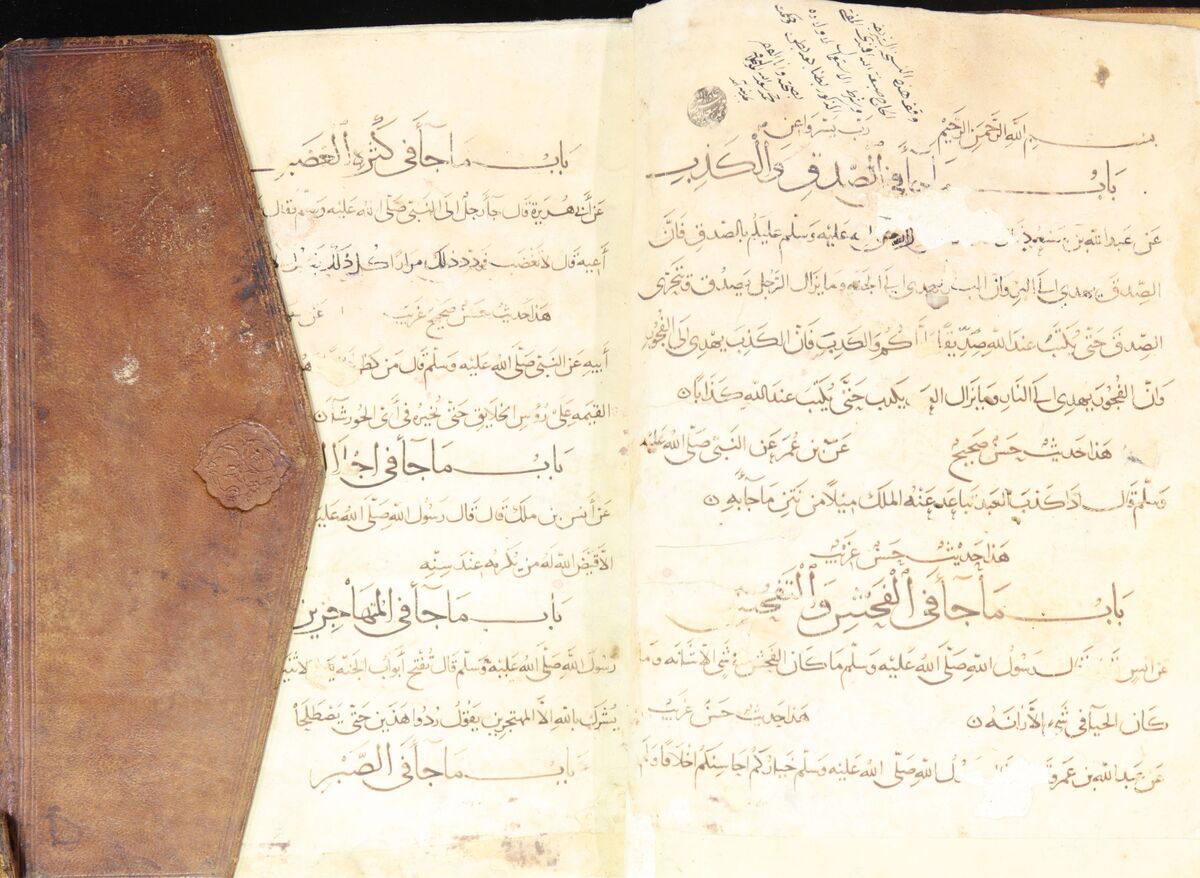 وقف هذه النسخة الشريفة
بسم الله الرحمن الرحيم
باب ما جآء في الصدق والكذب
عن عبد الله بن مسعود عليه وسلم عليكم بالصدق فان
الصدق يهدي الى البر وان البر يهدي الى الجنة وما يزال الرجل يصدق ويتحرى
الصدق حتى يكتب عند الله صديقا واياكم والكذب فان الكذب يهدي الى الفجور
وان الفجور يهدي الى النار وما يزال العبد يكذب حتى يكتب عند الله كذابا
هذا حديث حسن صحيح عن بن عمر عن النبي صلى الله عليه
وسلم قال اذا كذب العبد تباعد عنه الملك ميلا من نتن ما جآء به
هذا حديث حسن غريب
باب ما جآء في الفحش والتفحش
عن انس قال رسول الله صلى الله عليه وسلم ما كان الفحش في شي الا شانه وما
كان الحيآء في شيء الا زانه هذا حديث حسن غريب
عن عبد الله بن عمرو رسول الله صلى الله عليه وسلم خياركم احاسنكم اخلاقا ولم
باب ما جآء في كثرة الغضب
عن أبي هريرة قال جآء رجل الى النبي صلى الله عليه وسلم فقال
أعيه قال لا تغضب فردد ذلك مرارا كل ذلك
هذا حديث حسن صحيح غريب عن
أبيه عن النبي صلى الله عليه وسلم قال من كظم
القيمة على رؤس الخلايق حتى يخيره في أي الحور شآء
باب ما جآء في اجلال
عن أنس بن ملك قال قال رسول الله صلى الله عليه
الا قيض الله له من يكرمه عند سنه
باب ما جآء في المتهاجرين
رسول الله صلى الله عليه وسلم قال تفتح أبواب الجنة
يشرك بالله الا المهتجرين يقول ردوا هذين حتى يصطلحا
باب ما جآء في الصبر